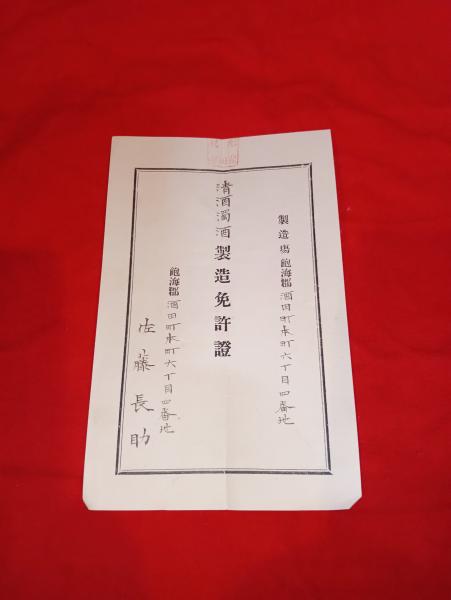 製造場飽海郡酒田町本町六丁目四番地
清酒濁酒製造免許證
飽海郡酒田町本町六丁目四番地
佐藤長助